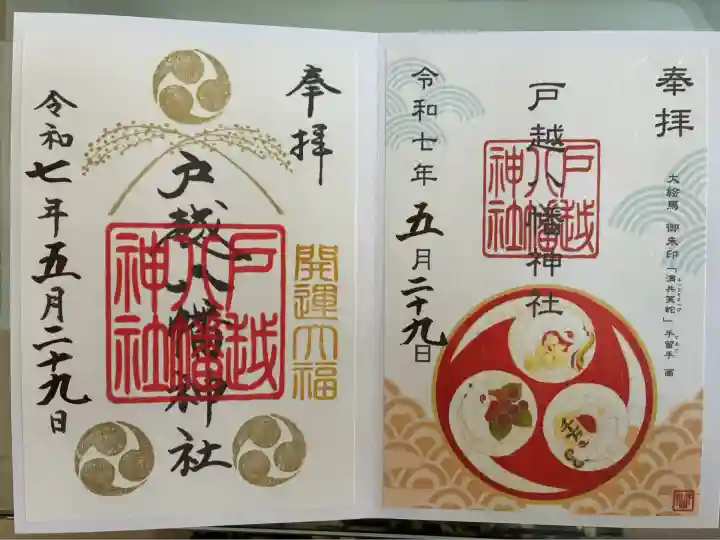 奉拝
大絵馬 御朱印「満共笑蛇」手留手 画
戸越八幡神社
戸越
八幡
神社
令和七年 五月二十九日
奉拝
開運大福
戸越八幡神社
戸越
八幡
神社
令和七年五月二十九日